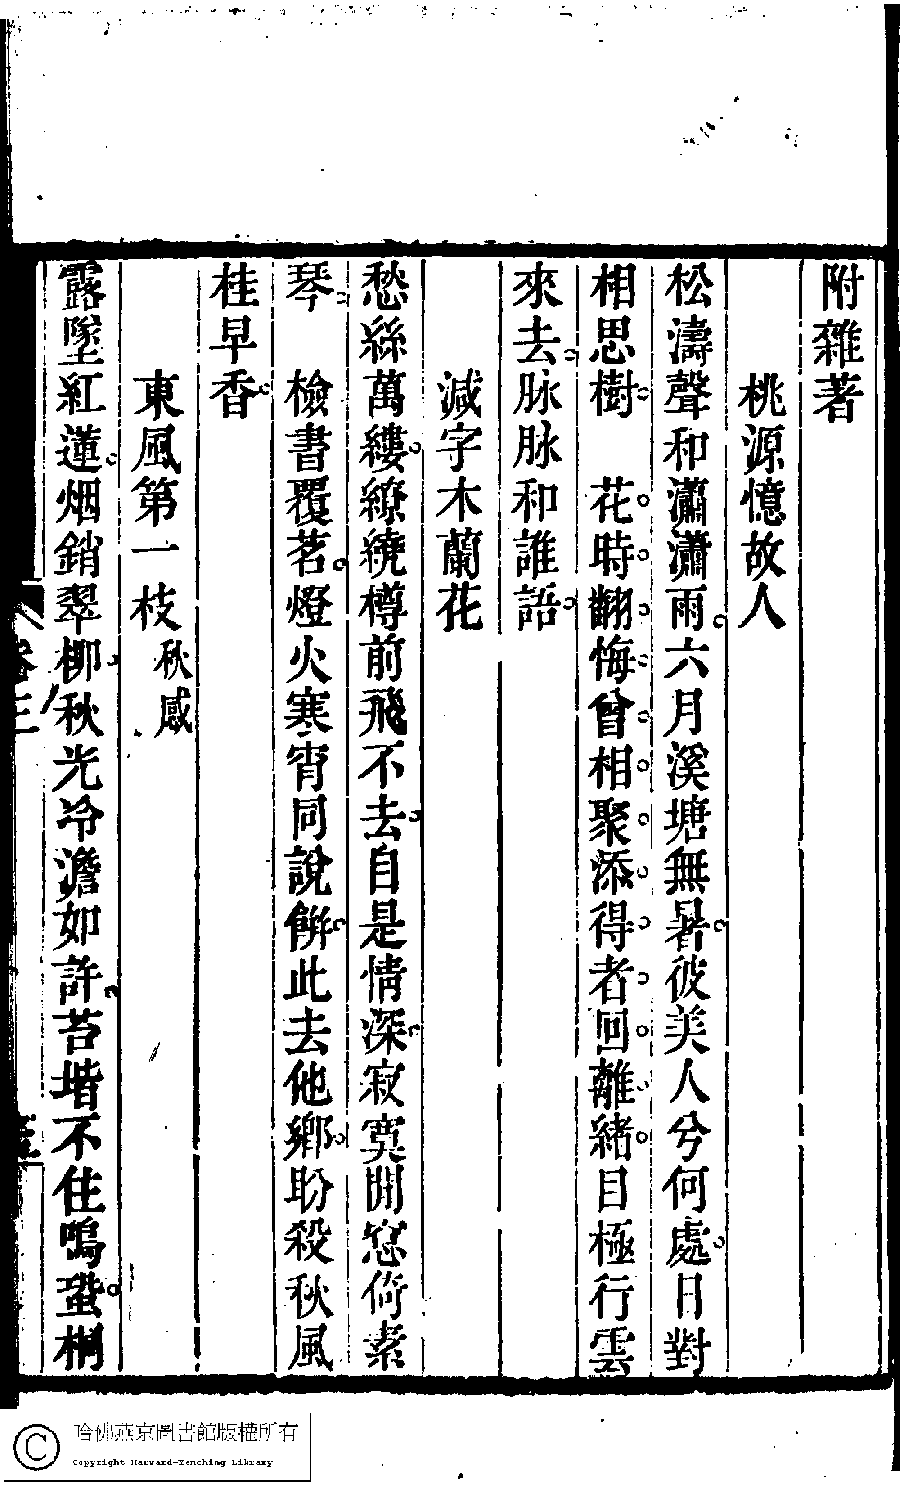 附雜著
桃源憶故人
松濤聲和瀟瀟雨六月溪塘無暑彼美人兮何處日對
相思樹　花時翻悔曾相聚添得者回離緒目極行雲
來去脉脉和誰語
減字木蘭花
愁絲萬縷繚繞樽前飛不去自是情深寂寞開窓倚素
琴　檢書覆茗燈火寒宵同說餅此去他鄉盼殺秋風
桂早香
東風第一枝秋感
露墜紅蓮烟銷翠柳秋光冷澹如許苔堦不住鳴蛩桐
卷三
哈佛燕京圖書館版權所有
Copyright Harvard-Yenching Library